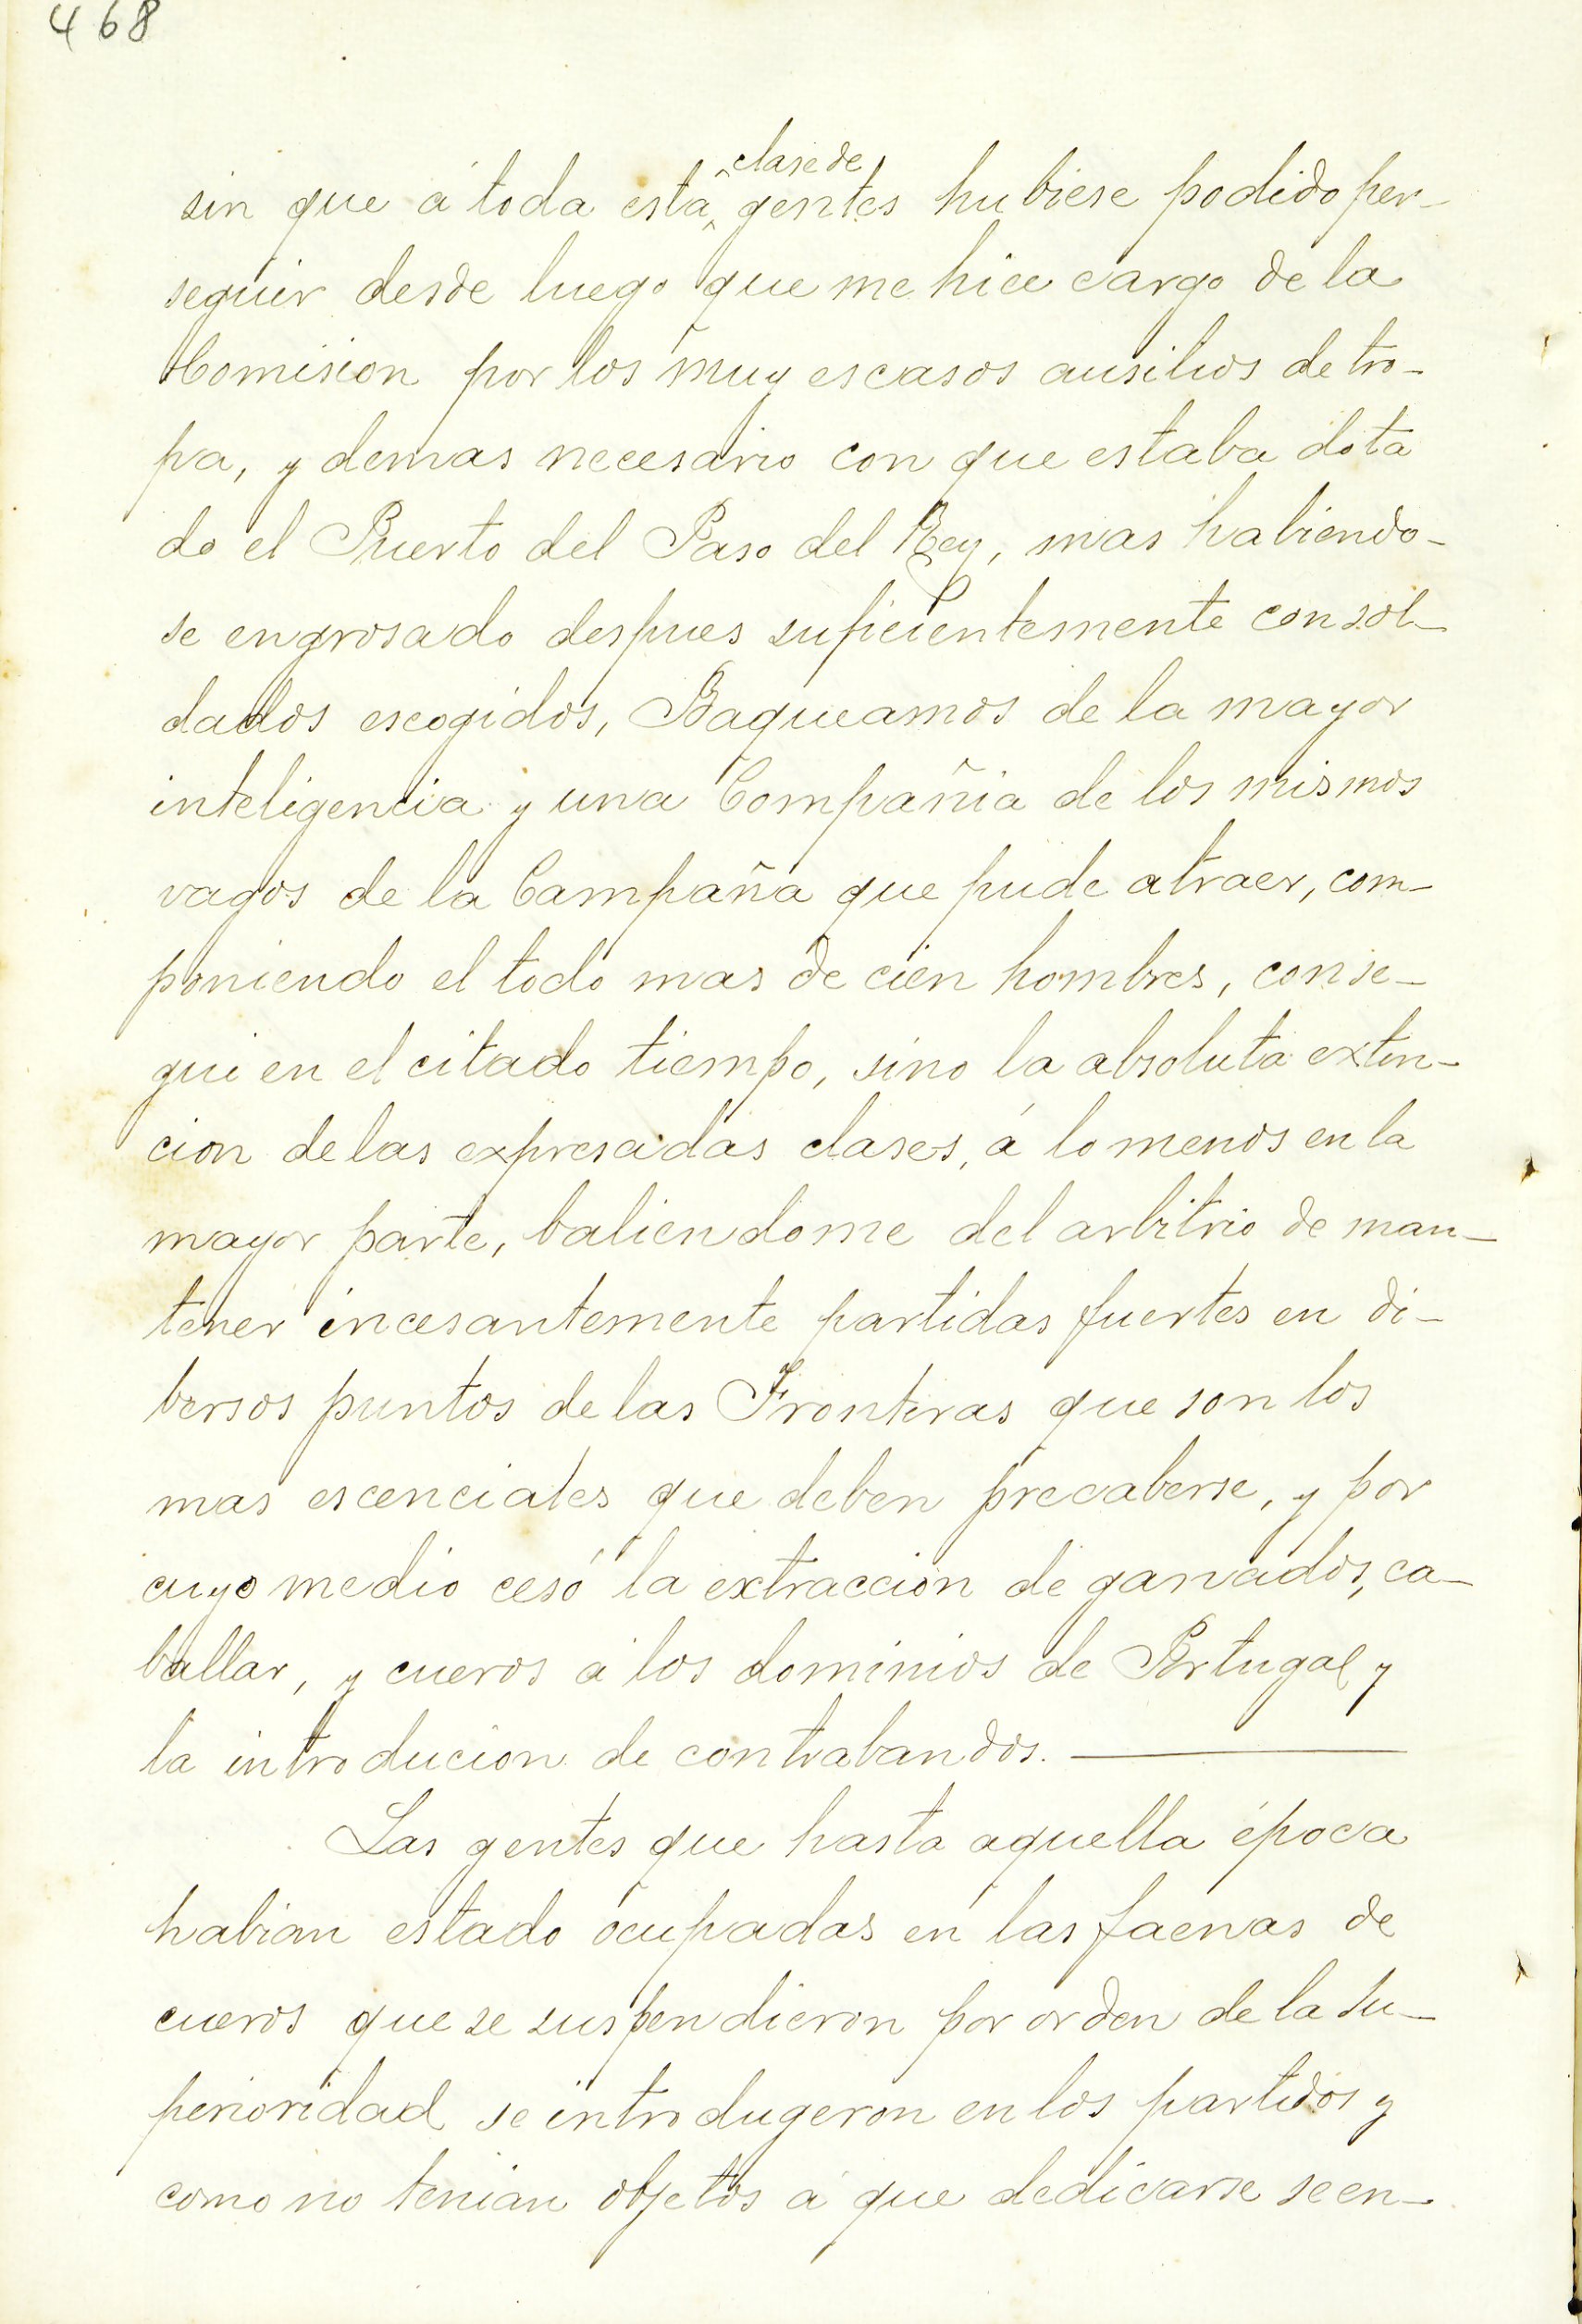 468
clase de
sin que á toda esta gentes hubiese podido per-
seguir desde luego que me hice cargo de la
Comision por los muy escasos ausilios de tro-
pa, y demas necesario con que estaba dota
do el Puerto del Paso del Rey, mas habiendo-
se engrosado despues suficientemente con sol-
dados escogidos, Baqueamos de la mayor
inteligencia y una Compañia de los mismos
vagos de la Campaña que pude atraer, com-
poniendo el todo mas de cien hombres, conse-
gui en el citado tiempo, sino la absoluta extin-
cion de las expresadas clases, á lo menos en la
mayor parte, baliendome del arbitrio de man-
tener incesantemente partidas fuertes en di-
bersos puntos de las Fronteras que son los
mas escenciales que deben precaberse, y por
cuyo medio cesó la extraccion de ganados, ca-
ballar, y cueros á los dominios de Portugal y
la introducion de contrabandos.
Las gentes que hasta aquella época
habian estado ocupadas en las faenas de
cueros que se suspendieron por orden de la Su-
perioridad se introdugeron en los partidos y
como no tenian objetos á que dedicarse se en-